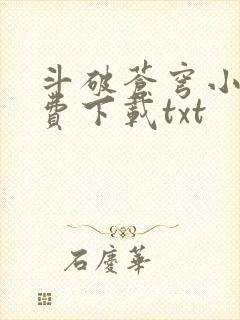 斗破蒼穹小
費下載txt
石慶華